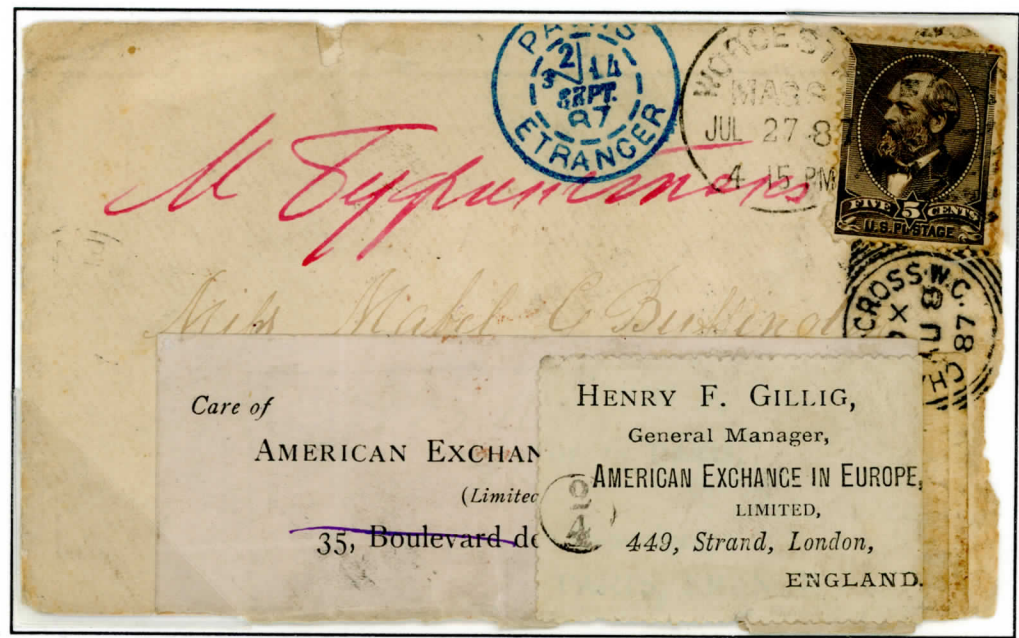 PARIS
14
SEPT.
87
ETRANGER
WORCEST
MASS
JUL 27 87
4 15 PM
FIVE 5 CENTS
U.S. POSTAGE
CROSS.W.C.
X
AU 8
87
CH
Miss Mabel C
Care of
AMERICAN EXCHAN
(Limited
35, Boulevard de
HENRY F. GILLIG,
General Manager,
AMERICAN EXCHANGE IN EUROPE,
LIMITED,
449, Strand, London,
ENGLAND.
9
4